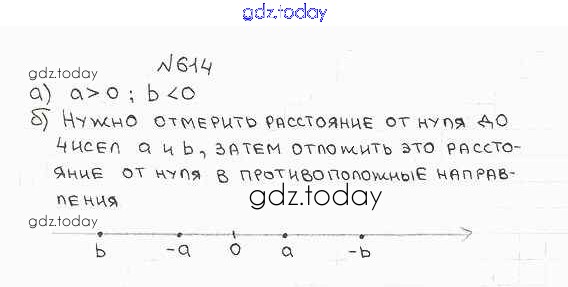 gdz.today
№614
gdz.today
а) a>0 ; b<0
б) НУЖНО ОТМЕРИТЬ РАССТОЯНИЕ ОТ НУЛЯ ДО
ЧИСЕЛ a и b, ЗАТЕМ ОТЛОЖИТЬ ЭТО РАССТО-
ЯНИЕ ОТ НУЛЯ В ПРОТИВОПОЛОЖНЫЕ НАПРАВ-
ЛЕНИЯ
gdz.today
gdz.today
b -a 0 a -b